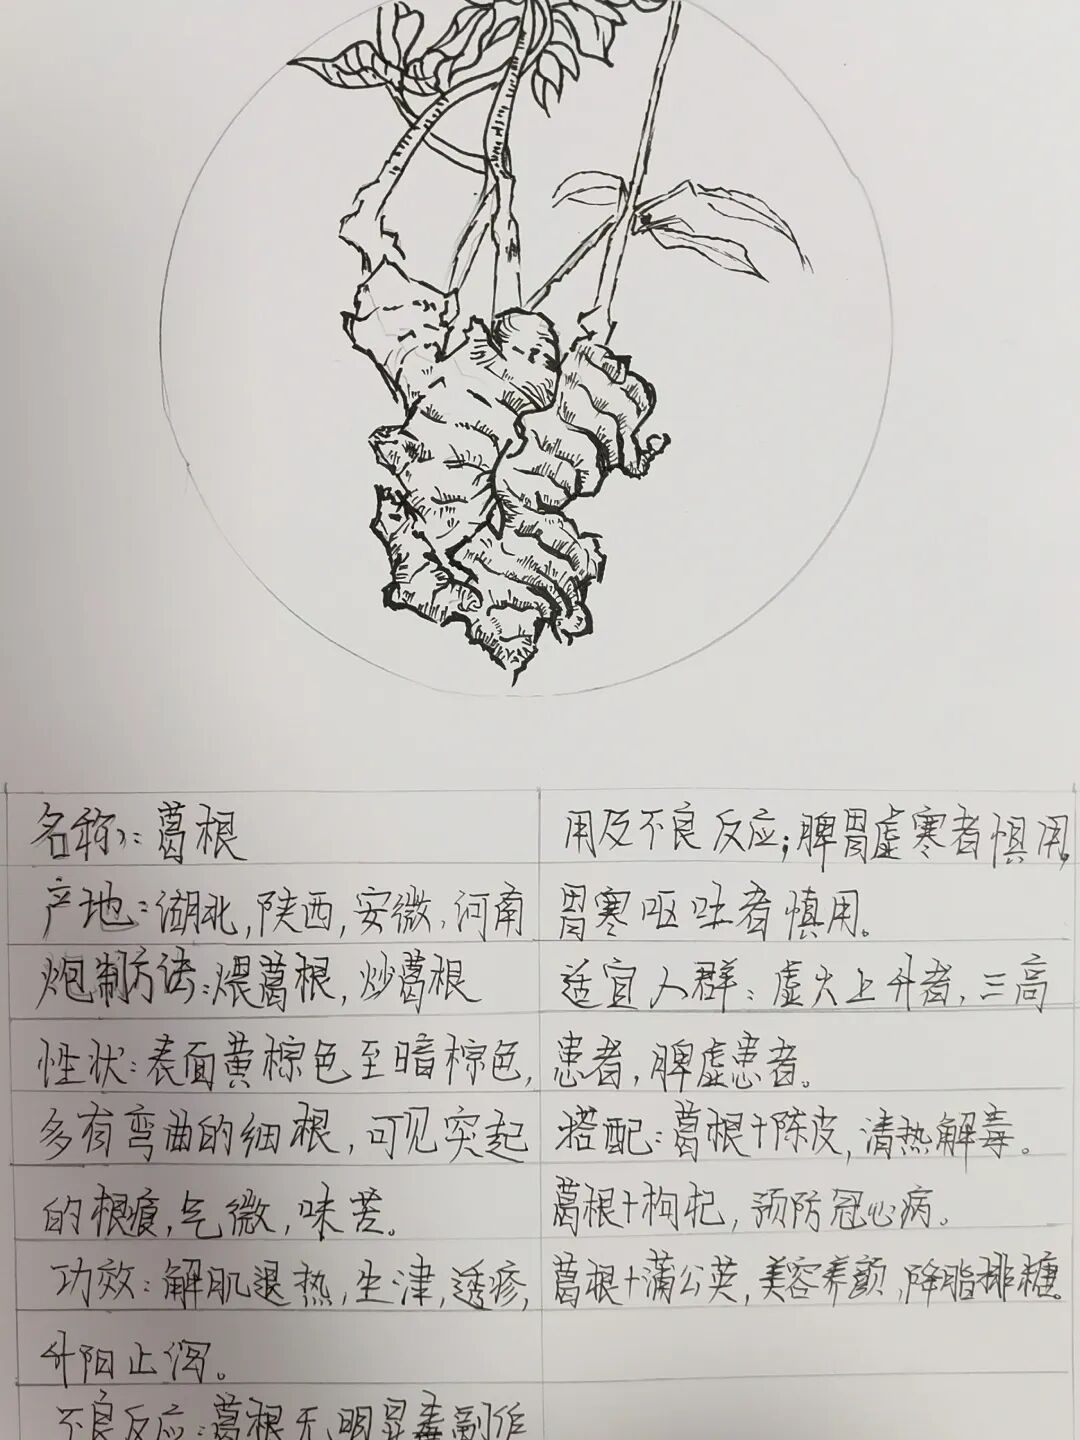 名称：葛根
产地：湖北，陕西，安微，河南
炮制方法：煨葛根，炒葛根
性状：表面黄棕色至暗棕色，
多有弯曲的细根，可见突起
的根痕，气微，味苦。
功效：解肌退热，生津，透疹，
升阳止泻。
不良反应：葛根无明显毒副作
用及不良反应；脾胃虚寒者慎用，
胃寒呕吐者慎用。
适宜人群：虚火上升者，三高
患者，脾虚患者。
搭配：葛根+陈皮，清热解毒。
葛根+枸杞，预防冠心病。
葛根+蒲公英，美容养颜，降脂排糖。